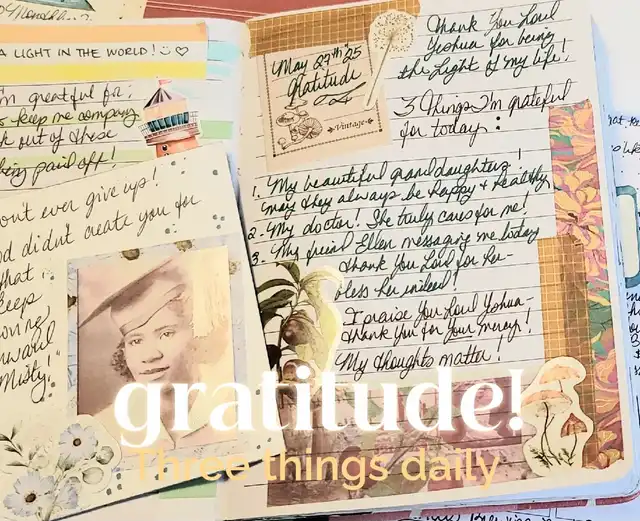 A LIGHT IN THE WORLD!
I'm greatful for:
keep me company
k out of these
being paid off!
on't ever give up!
od didn't create you for
that
keep
oving
nward
Misty!
May 27th '25
Gratitude
Vintage
Thank You Lord
Yeshua for being
the Light of my life!
3 Things I'm grateful
for today:
1. My beautiful granddaughters!
may they always be happy + healthy
2. My doctor! She truly cares for me!
3. My friend Ellen messaging me today
Thank You Lord for her-
bless her indeed!
I praise You Lord Yeshua-
Thank You for Your mercy!
My thoughts matter!
gratitude!
Three things daily